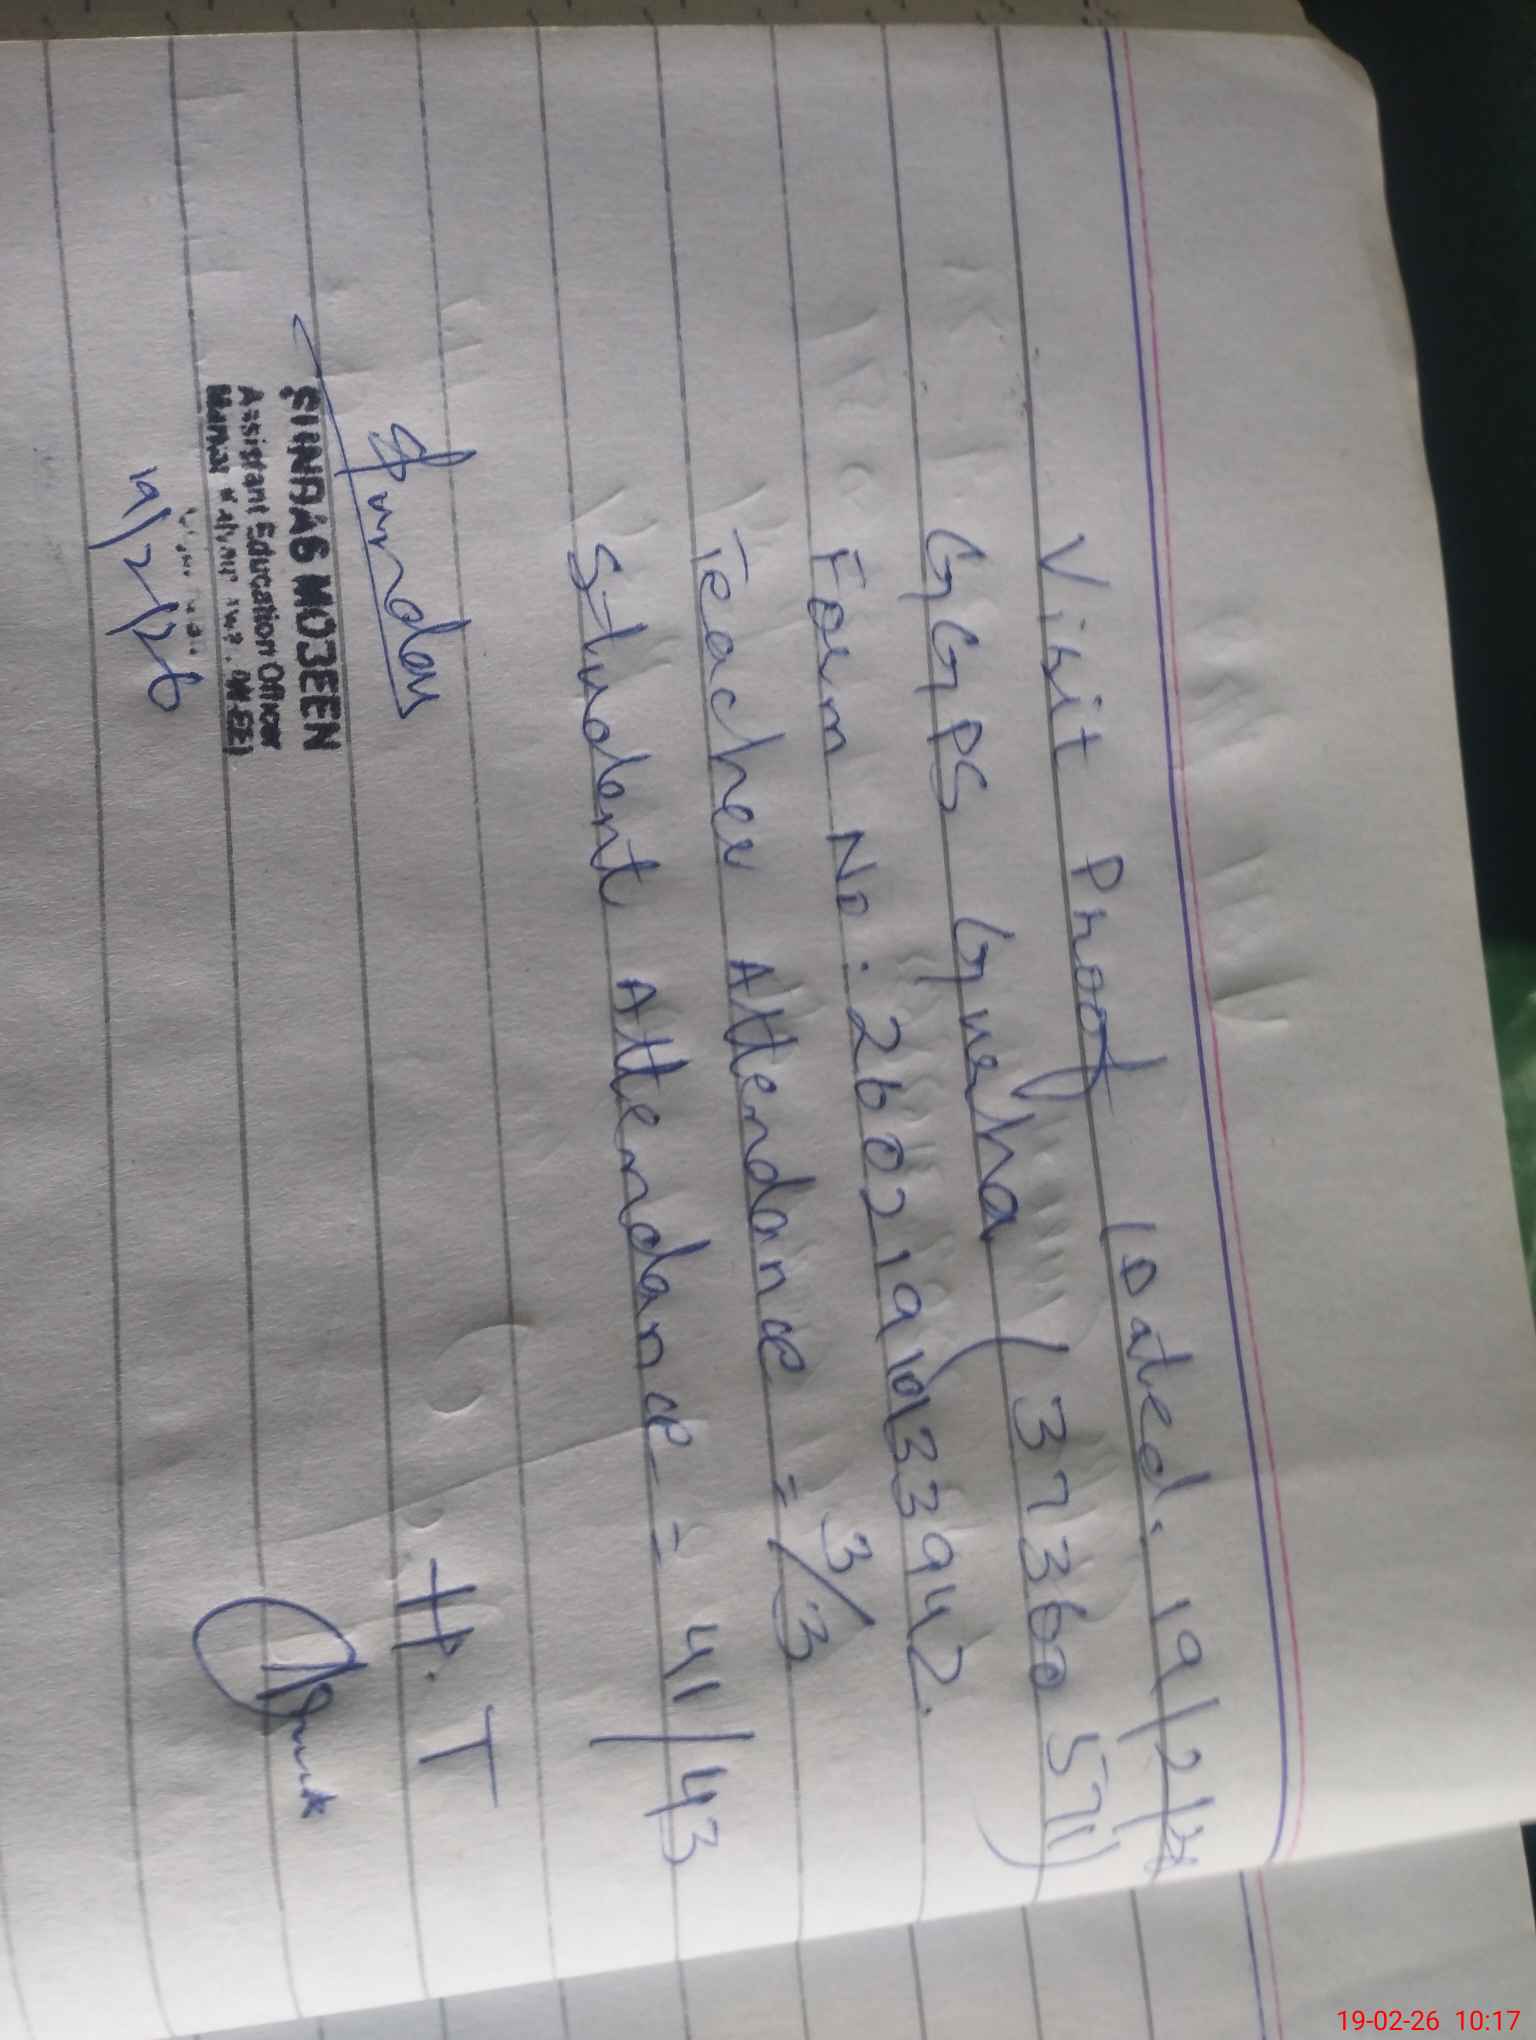 Visit Proof (Dated. 19/2/26
GGPS Gureha (37360571)
Form No: 260219103 3942.
Teacher Attendance = 3/3
Student Attendance = 41/43
H. T
Assistant Education Officer
19/2/26
19-02-26 10:17